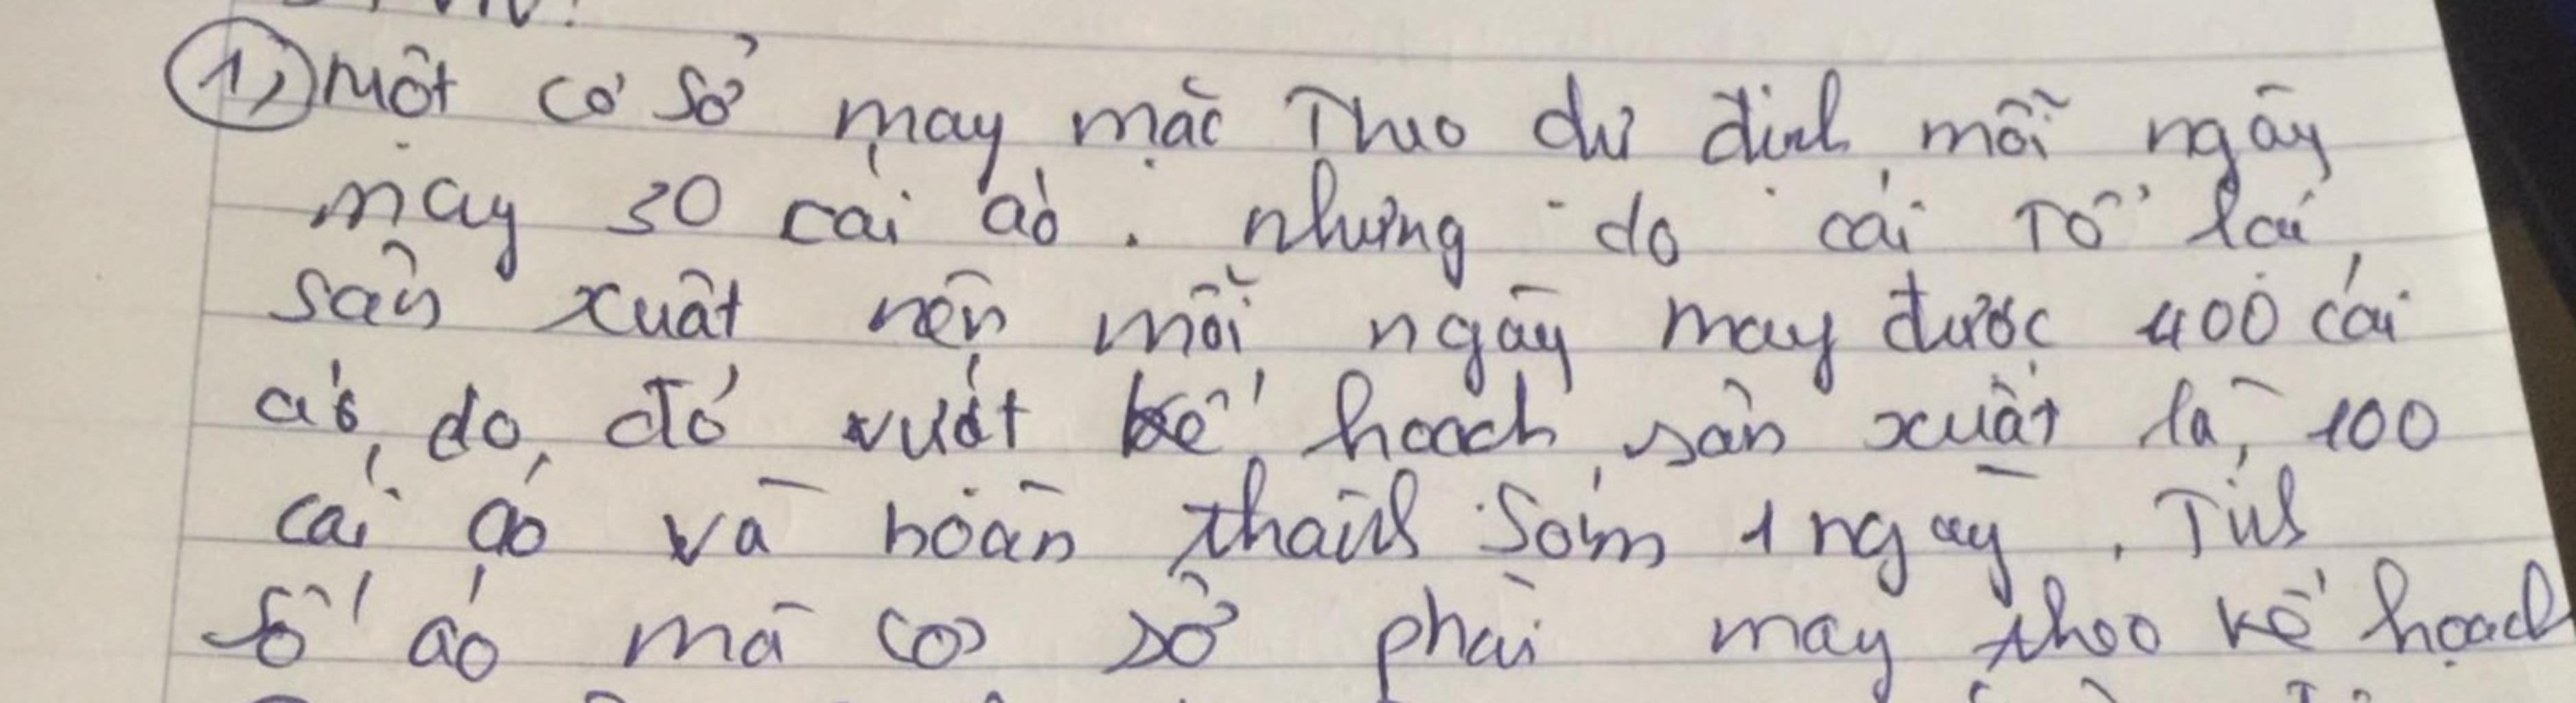 1, Một cơ sở may mặc Theo dự định mỗi ngày
may 30 cái áo. nhưng do cải tổ lại
sản xuất nên mỗi ngày may được 400 cái
áo, do đó vượt kế hoạch sản xuất là 100
cái áo và hoàn thành sớm 1 ngày. Tính
số áo mà cơ sở phải may theo kế hoạch